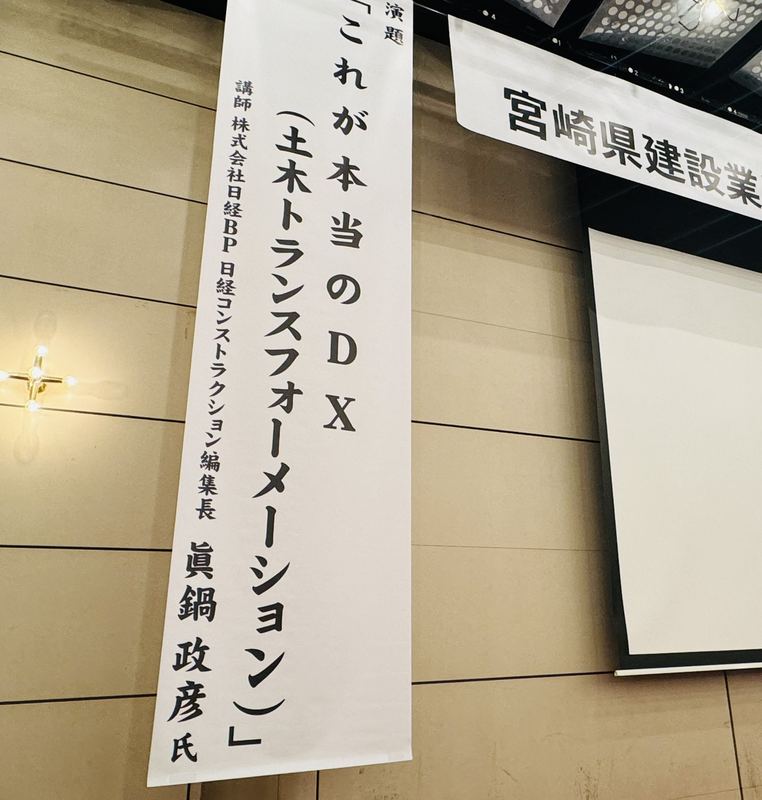 演題
「これが本当のDX
(土木トランスフォーメーション)」
講師 株式会社日経BP 日経コンストラクション編集長 眞鍋 政彦 氏
宮崎県建設業